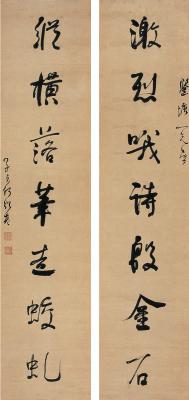 激烈哦詩殷金石
縱橫落筆走蛟虬
子貞何紹基